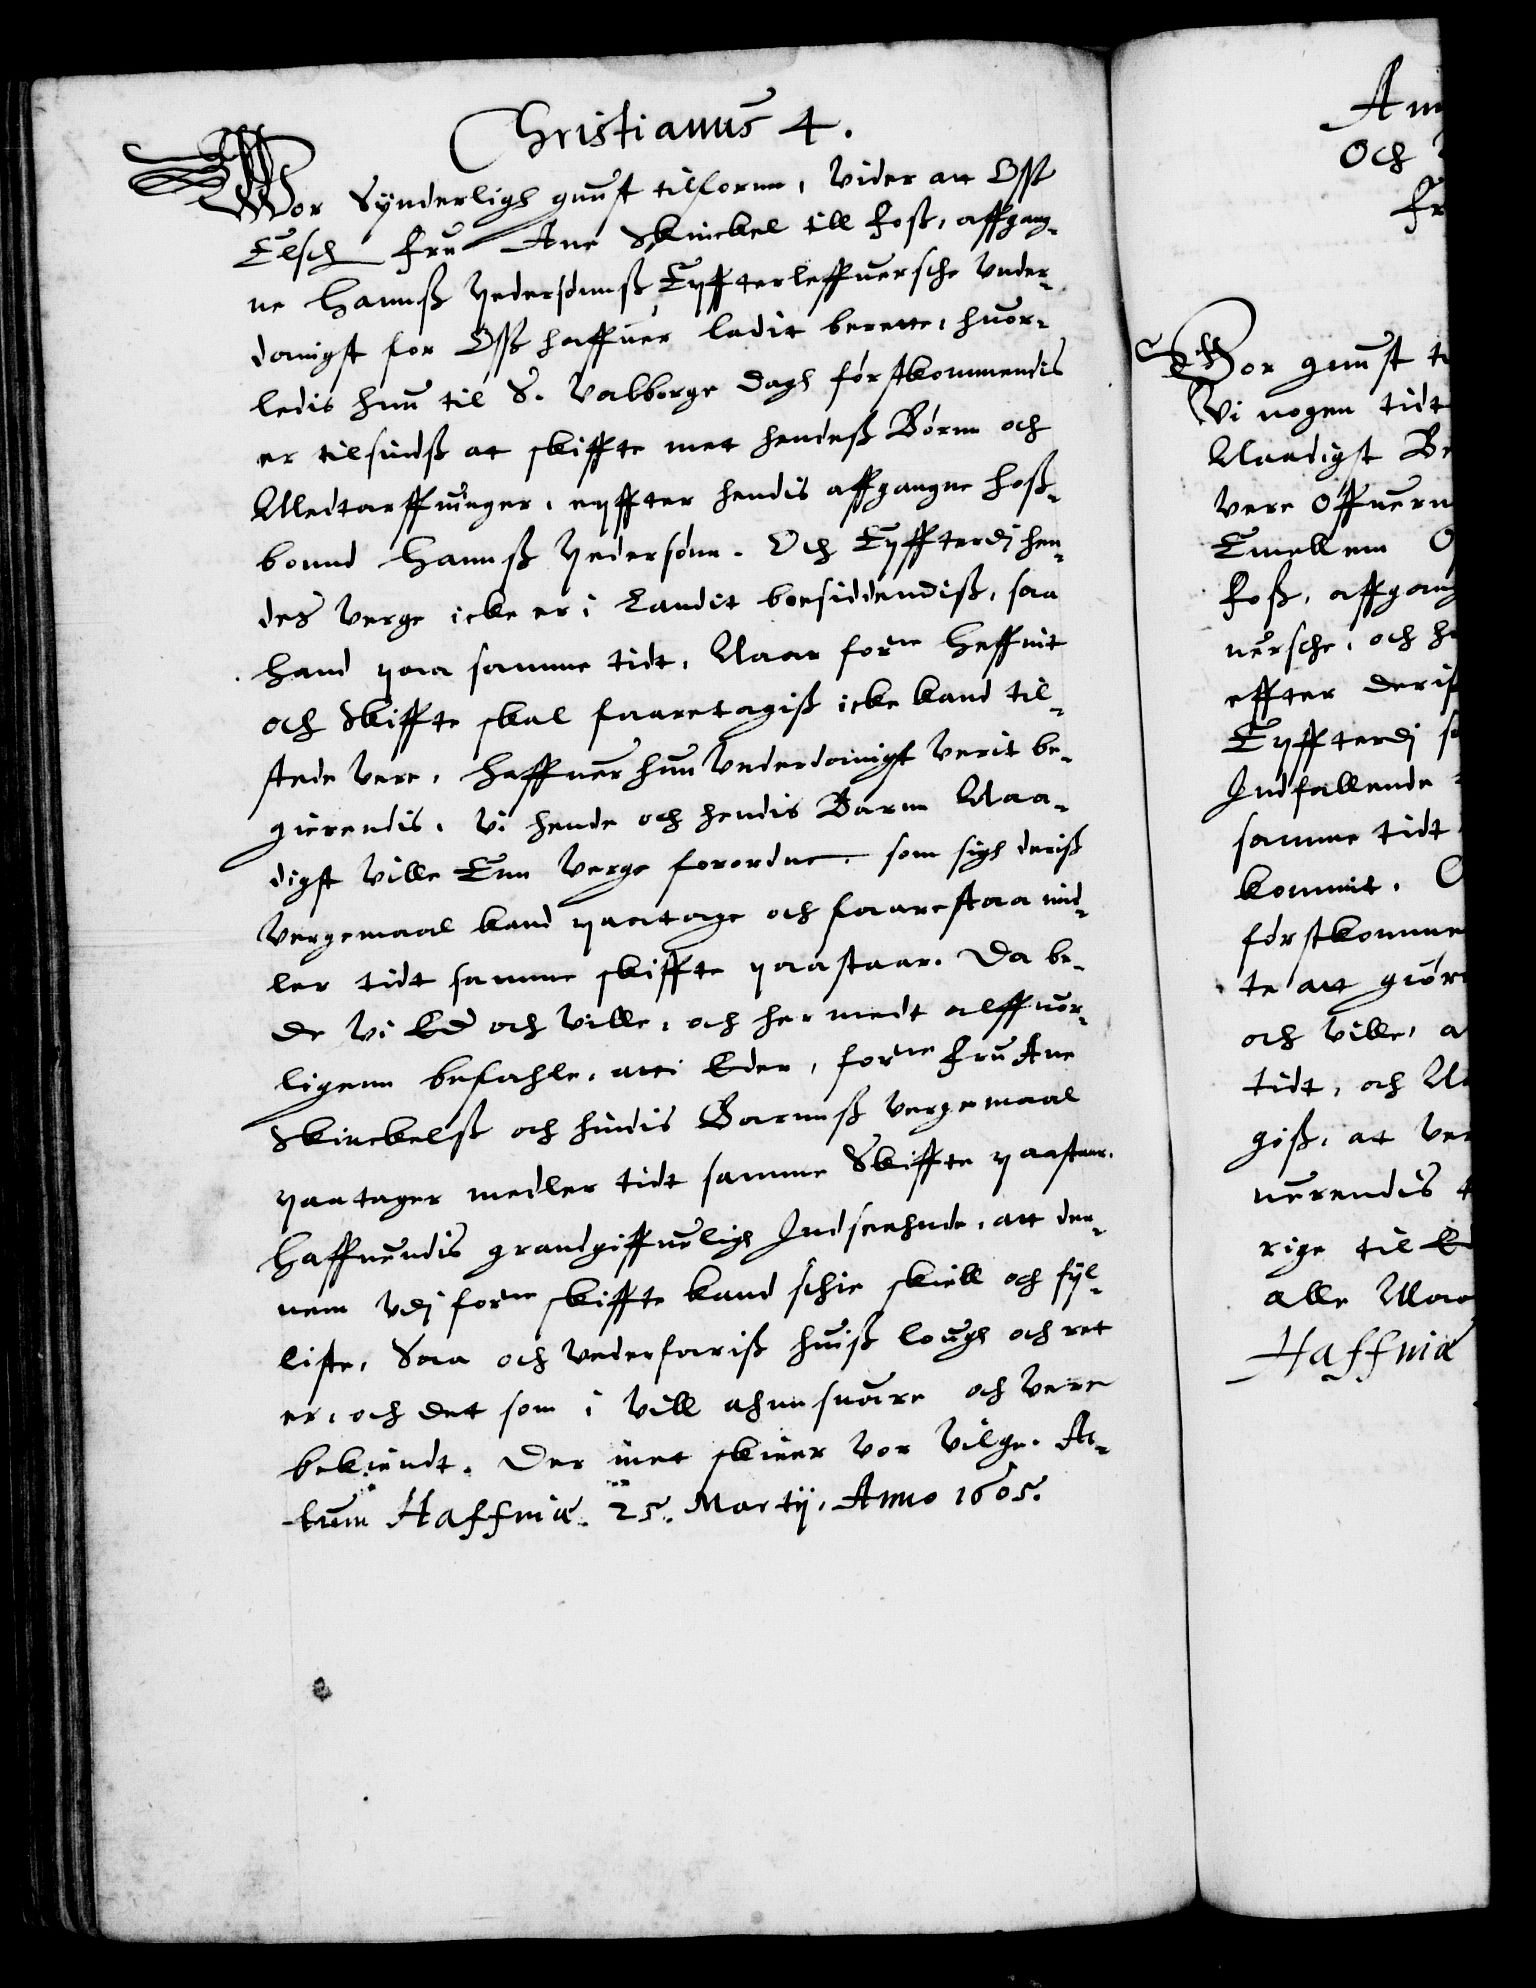 Christianus 4.
Wor Synderligh gunst tilforne, Vider att Oss
Elsch. Fru Ane Skinckel till Foss, affgang¬
ne Hannß Pedersønnß Effterleffuersche Vnder¬
danigst for Oss haffuer ladit berette, huor¬
ledis hun til S. Valborge dagh førstkommendis
er tilsindß at skiffte met hendeß Børnn och
Medtarffuinger, epffter hendis affgangne hoß¬
bonnd Hannß Pedersønn. Och Epffterdj hen¬
des Verge icke er i Landit boesiddendiß, saa
hand paa samme tidt, Naar forne Heffuit
och Skiffte skal faaretagiß icke kand til¬
stede Vere, haffuer hun Vnderdanigst Verit be¬
gierendis, Vi hende och hendis Barnn Naa¬
digst Ville Enn Verge forordne, som sigh deriß
Vergemaal kand paatage och faarestaa mid¬
ler tidt samme skiffte paastaar. Da be¬
de Vi Ed och Ville, och her medt alffuor¬
ligenn befahle, att i Eder, forne Fru Ane
Skinckelß och hindis Barnnß Vergemaal
paatager medler tidt samme Skiffte paastaar.
Haffuendis grandgiffueligh Indseehnde, att den¬
nem Vdj forne skiffte kand schie skiell och fyl¬
liste, Saa och Vederfariß huiß lough och ret
er, och det som i Vill ahnnsuare och Vere
bekiendt. Der met skieer Vor Vilge. Ac¬
tum Haffniæ. 25. Martij, Anno 1605.
Och
Fr
Vor gunst t
Vi nogen tidt
Naadigst Be
Vere Offuer
Emellem O
Foß, affgang
uersche, och h
effter deris
Epffterdj s
Indfallende
samme tidt
kommit. O
førstkomme
te att giør
och Ville, a
tidt, och N
giß, at ver
uerendis t
rige til Ed
alle Maa
Haffniæ